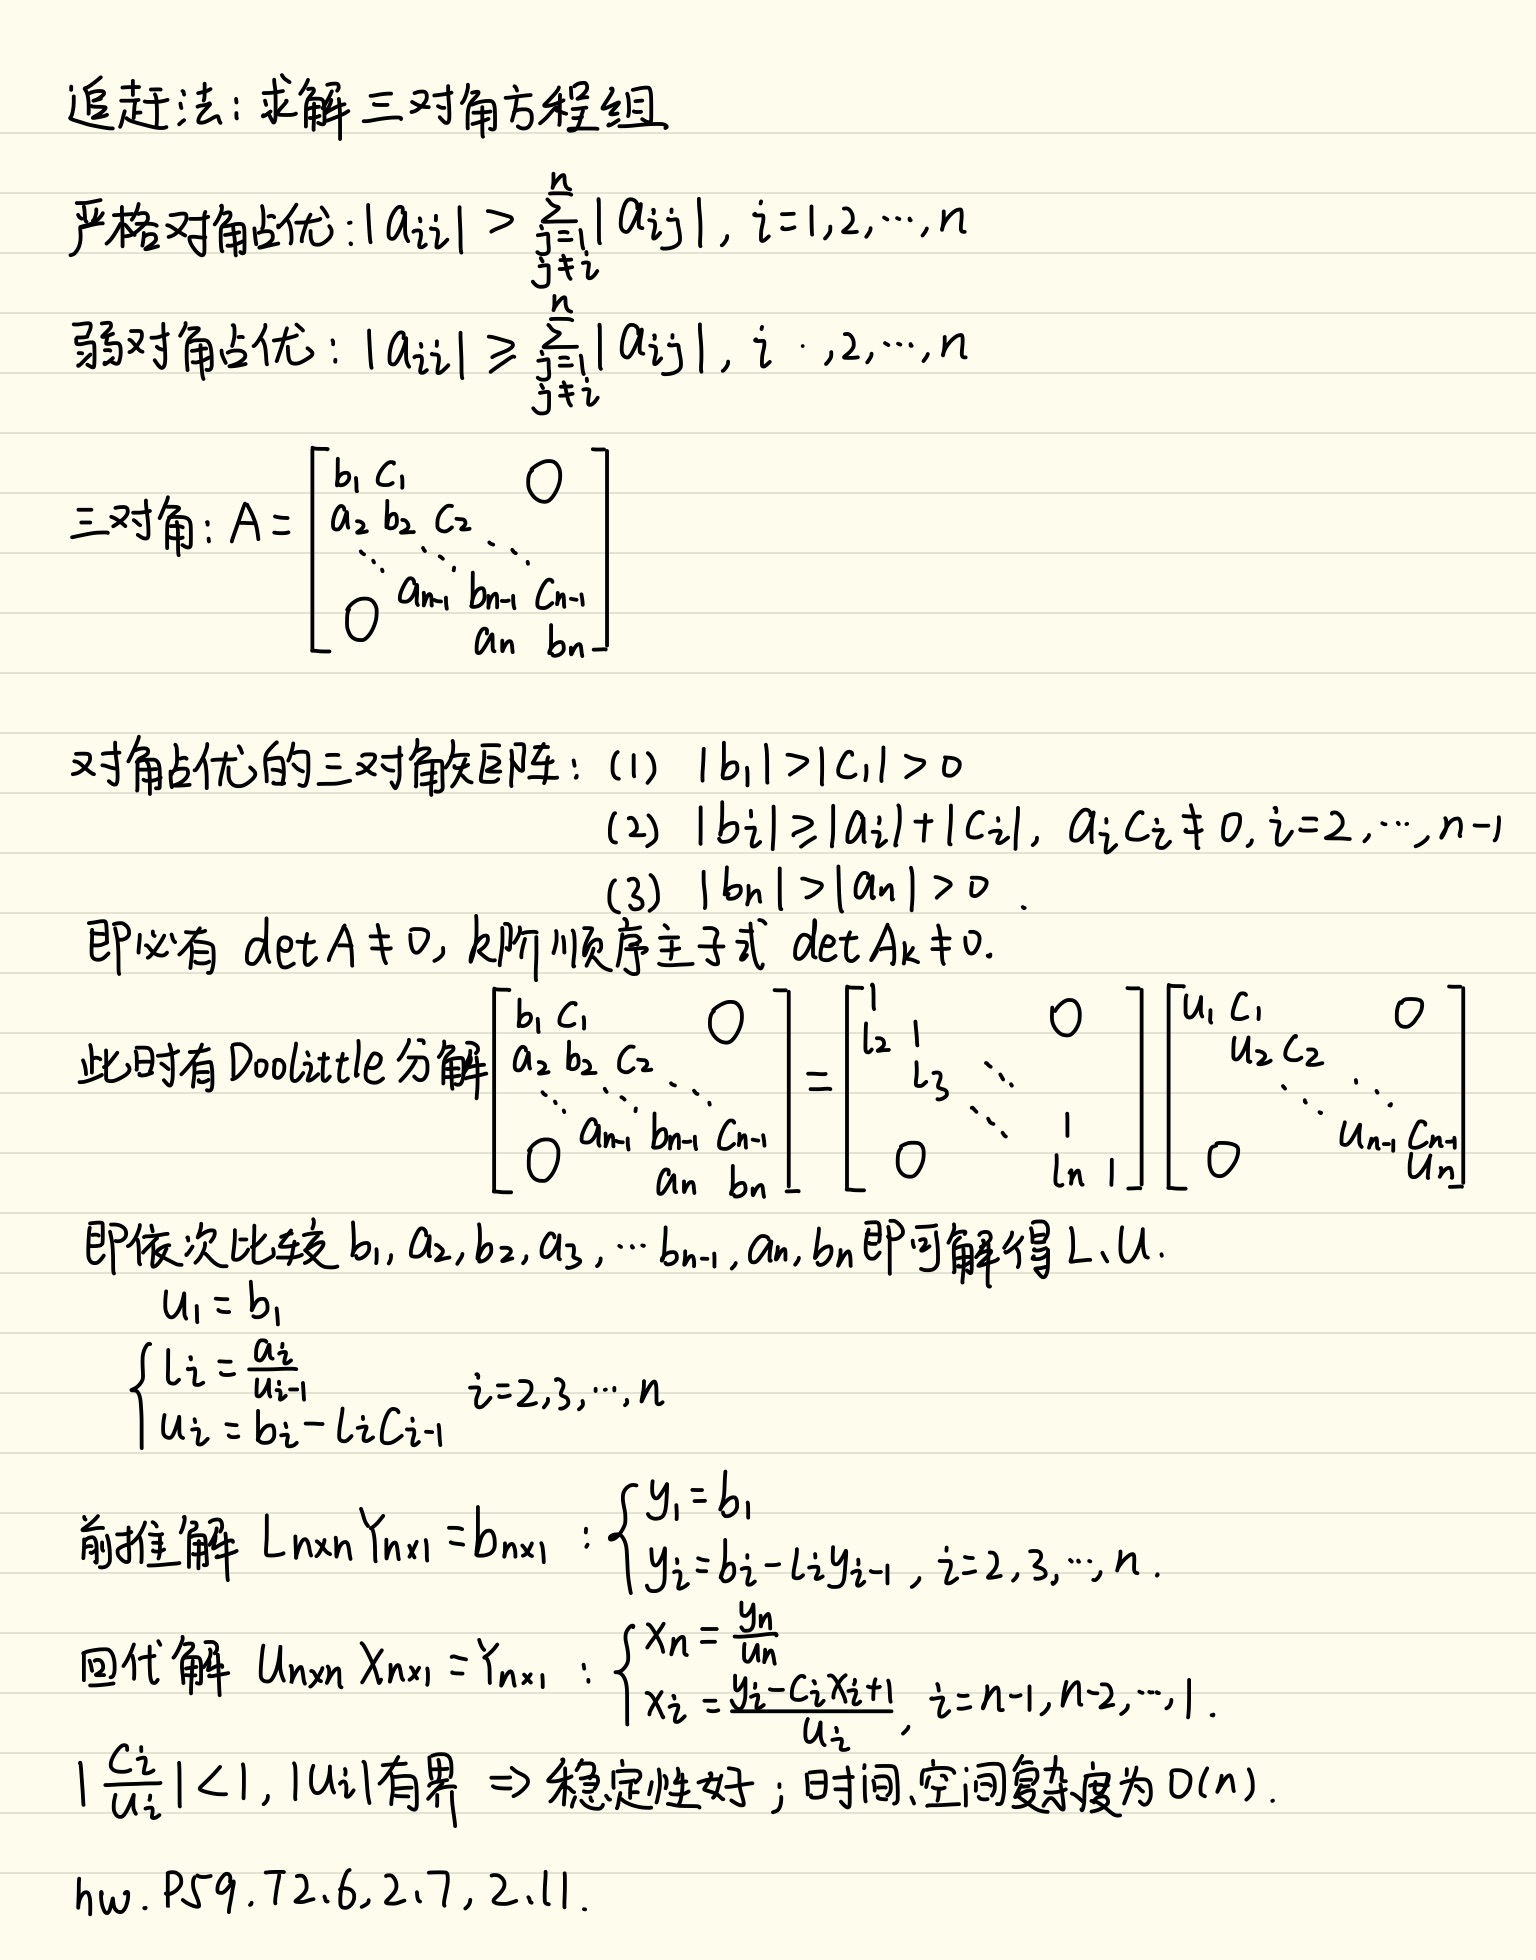 追赶法:求解三对角方程组
严格对角占优:|aᵢᵢ| > ∑_{j=1, j≠i}^{n} |aᵢⱼ|, i=1,2,…,n
弱对角占优:|aᵢᵢ| ≥ ∑_{j=1, j≠i}^{n} |aᵢⱼ|, i ·,2,…,n
三对角:A = [b₁ c₁ 0
a₂ b₂ c₂
⋱ ⋱ ⋱
aₙ₋₁ bₙ₋₁ cₙ₋₁
0 aₙ bₙ]
对角占优的三对角矩阵:(1) |b₁|>|c₁|>0
(2) |bᵢ|≥|aᵢ|+|cᵢ|, aᵢcᵢ≠0, i=2,…,n-1
(3) |bₙ|>|aₙ|>0.
即必有 detA≠0, k阶顺序主子式 detAₖ≠0.
此时有Doolittle分解 [b₁ c₁ 0
a₂ b₂ c₂
⋱ ⋱ ⋱
aₙ₋₁ bₙ₋₁ cₙ₋₁
0 aₙ bₙ]
= [1 0
l₂ 1
l₃ ⋱
⋱ 1
0 lₙ 1]
[u₁ c₁ 0
u₂ c₂
⋱ ⋱
uₙ₋₁ cₙ₋₁
0 uₙ]
即依次比较 b₁, a₂, b₂, a₃, …bₙ₋₁, aₙ, bₙ即可解得L、U.
u₁=b₁
{ lᵢ = aᵢ/uᵢ₋₁
uᵢ = bᵢ-lᵢcᵢ₋₁ i=2,3,…,n
前推解 Lₙₓₙ Yₙₓ₁ = bₙₓ₁ : { y₁=b₁
yᵢ=bᵢ-lᵢyᵢ₋₁, i=2,3,…,n.
回代解 Uₙₓₙ Xₙₓ₁ = Yₙₓ₁ : { xₙ = yₙ/uₙ
xᵢ = (yᵢ-cᵢxᵢ₊₁)/uᵢ, i=n-1,n-2,…,1.
|cᵢ/uᵢ|<1, |uᵢ|有界 ⇒ 稳定性好;时间、空间复杂度为O(n).
hw. P59. T2.6, 2.7, 2.11.